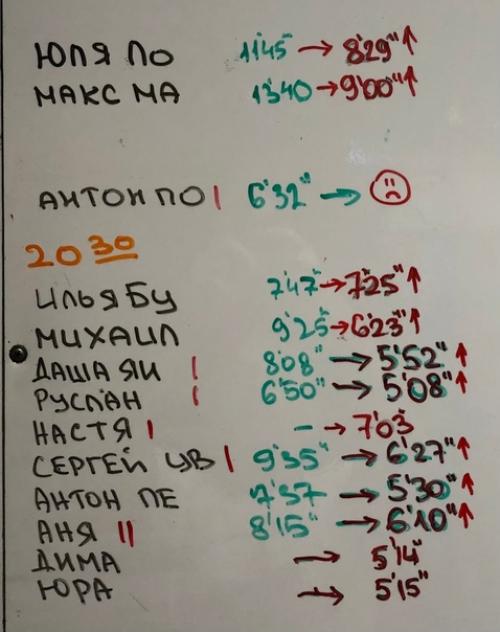 ЮЛЯ ЛО 11'45" → 8'29" ↑
МАКС МА 13'40 → 9'00" ↑
АНТОН ПО | 6'32" → ☹
20 30
ИЛЬЯ БУ 7'47" → 7'25" ↑
МИХАИЛ 9'25" → 6'23" ↑
ДАША ЯИ | 8'08" → 5'52" ↑
РУСЛАН | 6'50" → 5'08" ↑
НАСТЯ | - → 7'03"
СЕРГЕЙ ЦВ | 9'35" → 6'27" ↑
АНТОН ПЕ 7'37 → 5'30" ↑
АНЯ || 8'15" → 6'10" ↑
ДИМА → 5'14"
ЮРА → 5'15"